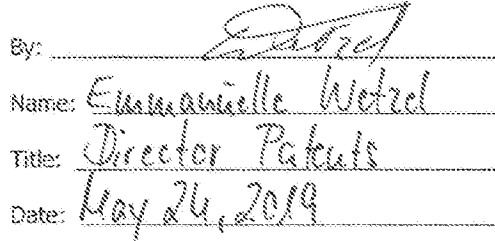 By:
Name: Emmanuelle Wetzel
Title: Director Patents
Date: May 24, 2019